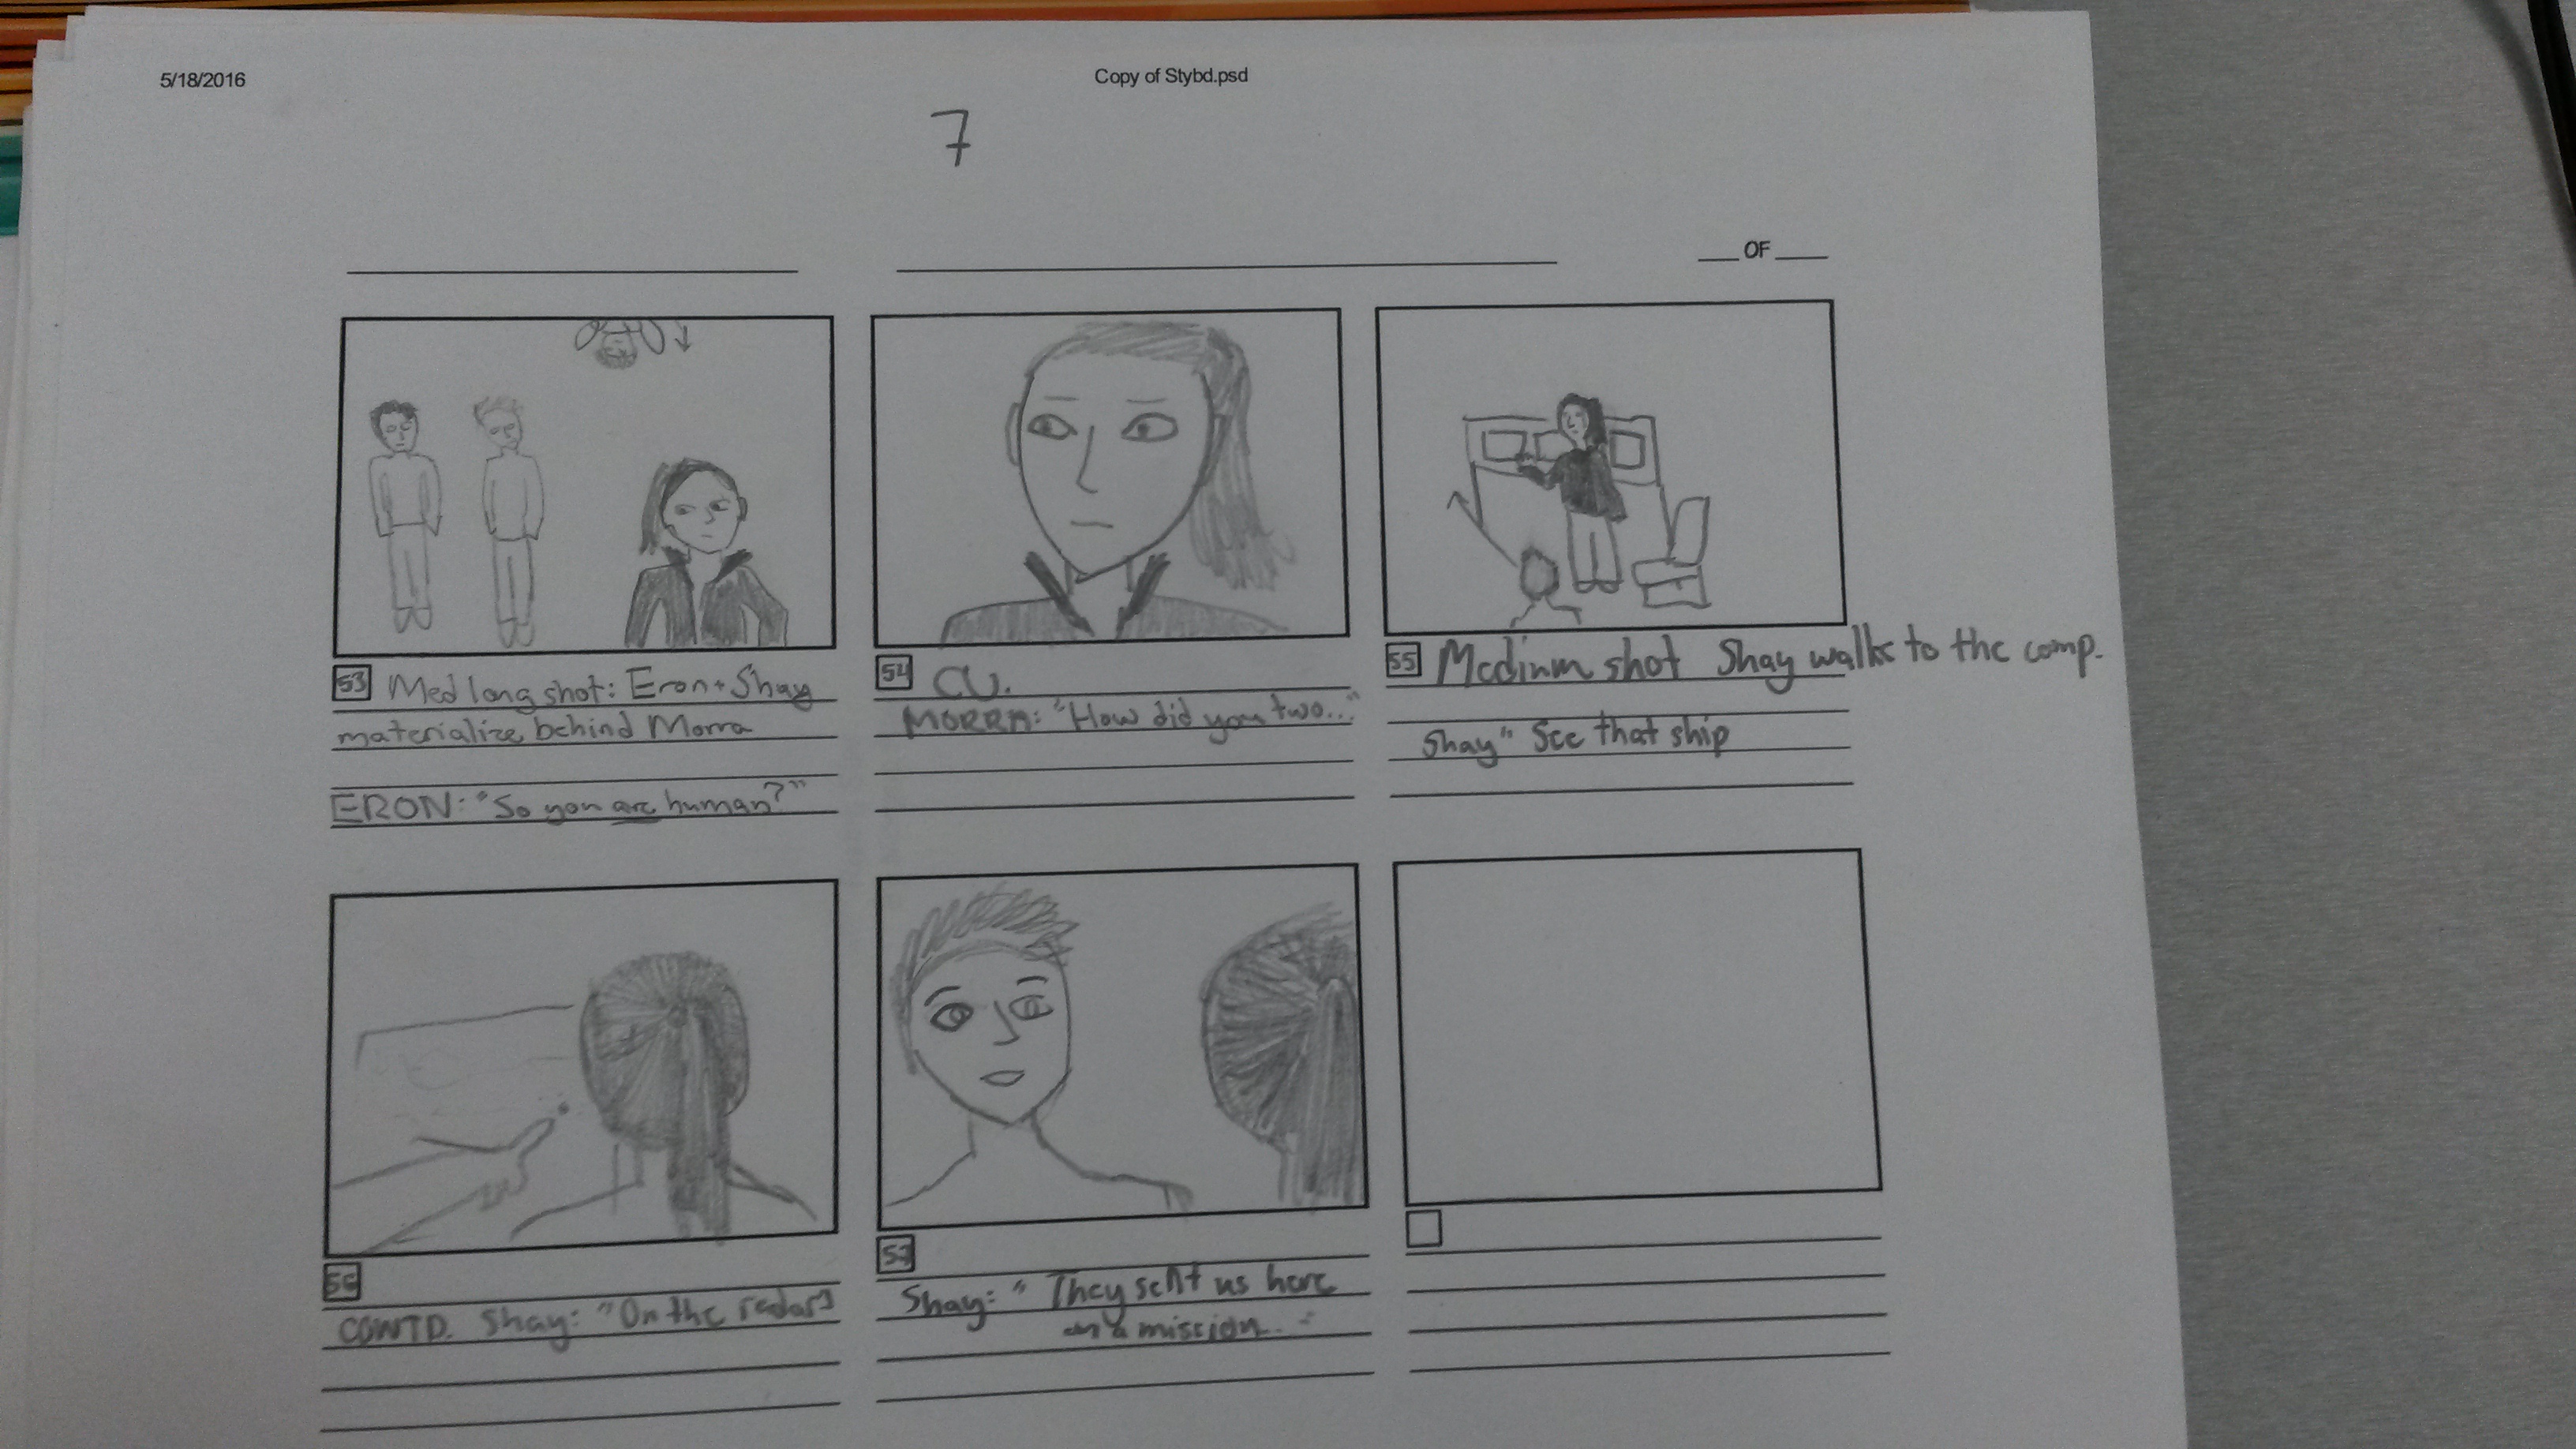 5/18/2016
Copy of Stybd.psd
7
___ OF ___
53 Med long shot: Eron + Shay
materialize behind Morra
ERON: "So you are human?"
54 CU.
MORRA: "How did you two..."
55 Medium shot Shay walks to the comp.
Shay" See that ship
56
CONTD. Shay: "On the radar?
57
Shay: "They sent us here
on a mission..."